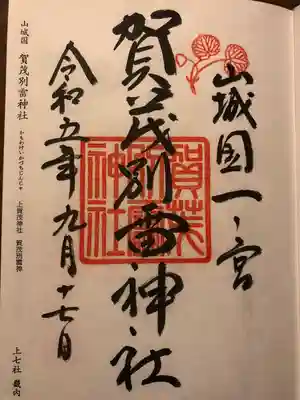 山城国一ノ宮
賀茂別雷神社
賀茂
別雷
神社
令和五年九月十七日
山城国 賀茂別雷神社
かもわけいかづちじんじゃ
上賀茂神社 賀茂別雷神
上七社 畿内